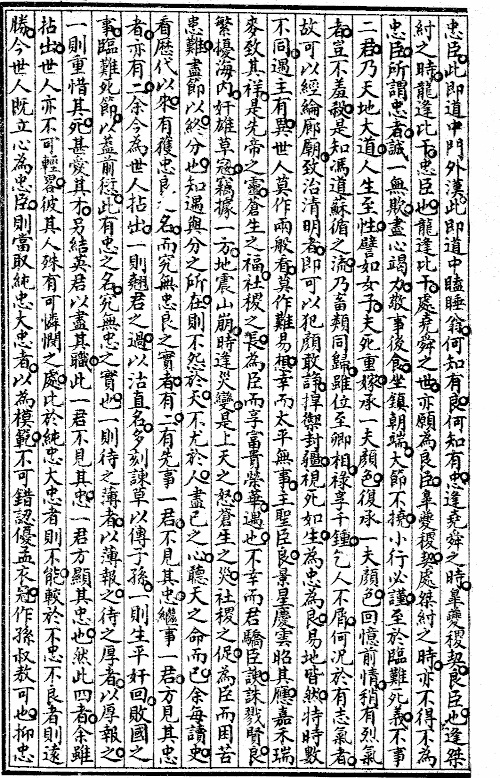 忠臣此即道中門外漢此即道中瞌睡翁何知有良何知有忠逢堯舜之時臯夔稷契良臣也逢桀
紂之時龍逢比干忠臣也龍逢比干處堯舜之世亦願為良臣臯夔稷契處桀紂之時亦不得不為
忠臣所謂忠者誠一無欺盡心竭力敬事後食坐鎮朝端大節不撓小行必謹至於臨難死義不事
二君乃天地大道人生至性譬如女子夫死重嫁承一夫顏色復承一夫顏色回憶前情稍有烈氣
者豈不羞殺是知馮道蘇循之流乃畜類同歸雖位至卿相祿享千鍾乞人不屑何況於有志氣者
故可以經綸廊廟致治清明者即可以犯顏敢諍捍禦封疆視死如生為忠為良易地皆然特時數
不同遇主有異世人莫作兩般看莫作難易想幸而太平無事主聖臣良景星慶雲昭其應嘉禾瑞
麥致其祥是先帝之靈蒼生之福社稷之長為臣而享富貴榮華遇也不幸而君驕臣諛誅戮賢良
繁擾海內奸雄草冦竊據一方地震山崩時逢災變是上天之怒蒼生之災社稷之促為臣而困苦
患難盡節以終分也知遇與分之所在則不怨於天不尤於人盡己之心聽天之命而已余每讀史
看歷代以來有獲忠良之名而究無忠良之實者有二有先事一君不見其忠繼事一君方見其忠
者亦有二余今為世人拈出一則翹君之過以沽直名多刻諫草以傳子孫一則生平奸回敗國之
事臨難死節以蓋前愆此有忠之名究無忠之實也一則待之薄者以薄報之待之厚者以厚報之
一則重惜其死甚愛其才另結英君以盡其職此一君不見其忠一君方顯其忠也然此四者余雖
拈出世人亦不可輕畧彼其人殊有可憐憫之處比於純忠大忠者則不能較於不忠不良者則遠
勝今世人既立心為忠臣則當取純忠大忠者以為模範不可錯認優孟衣冠作孫叔敖可也抑忠